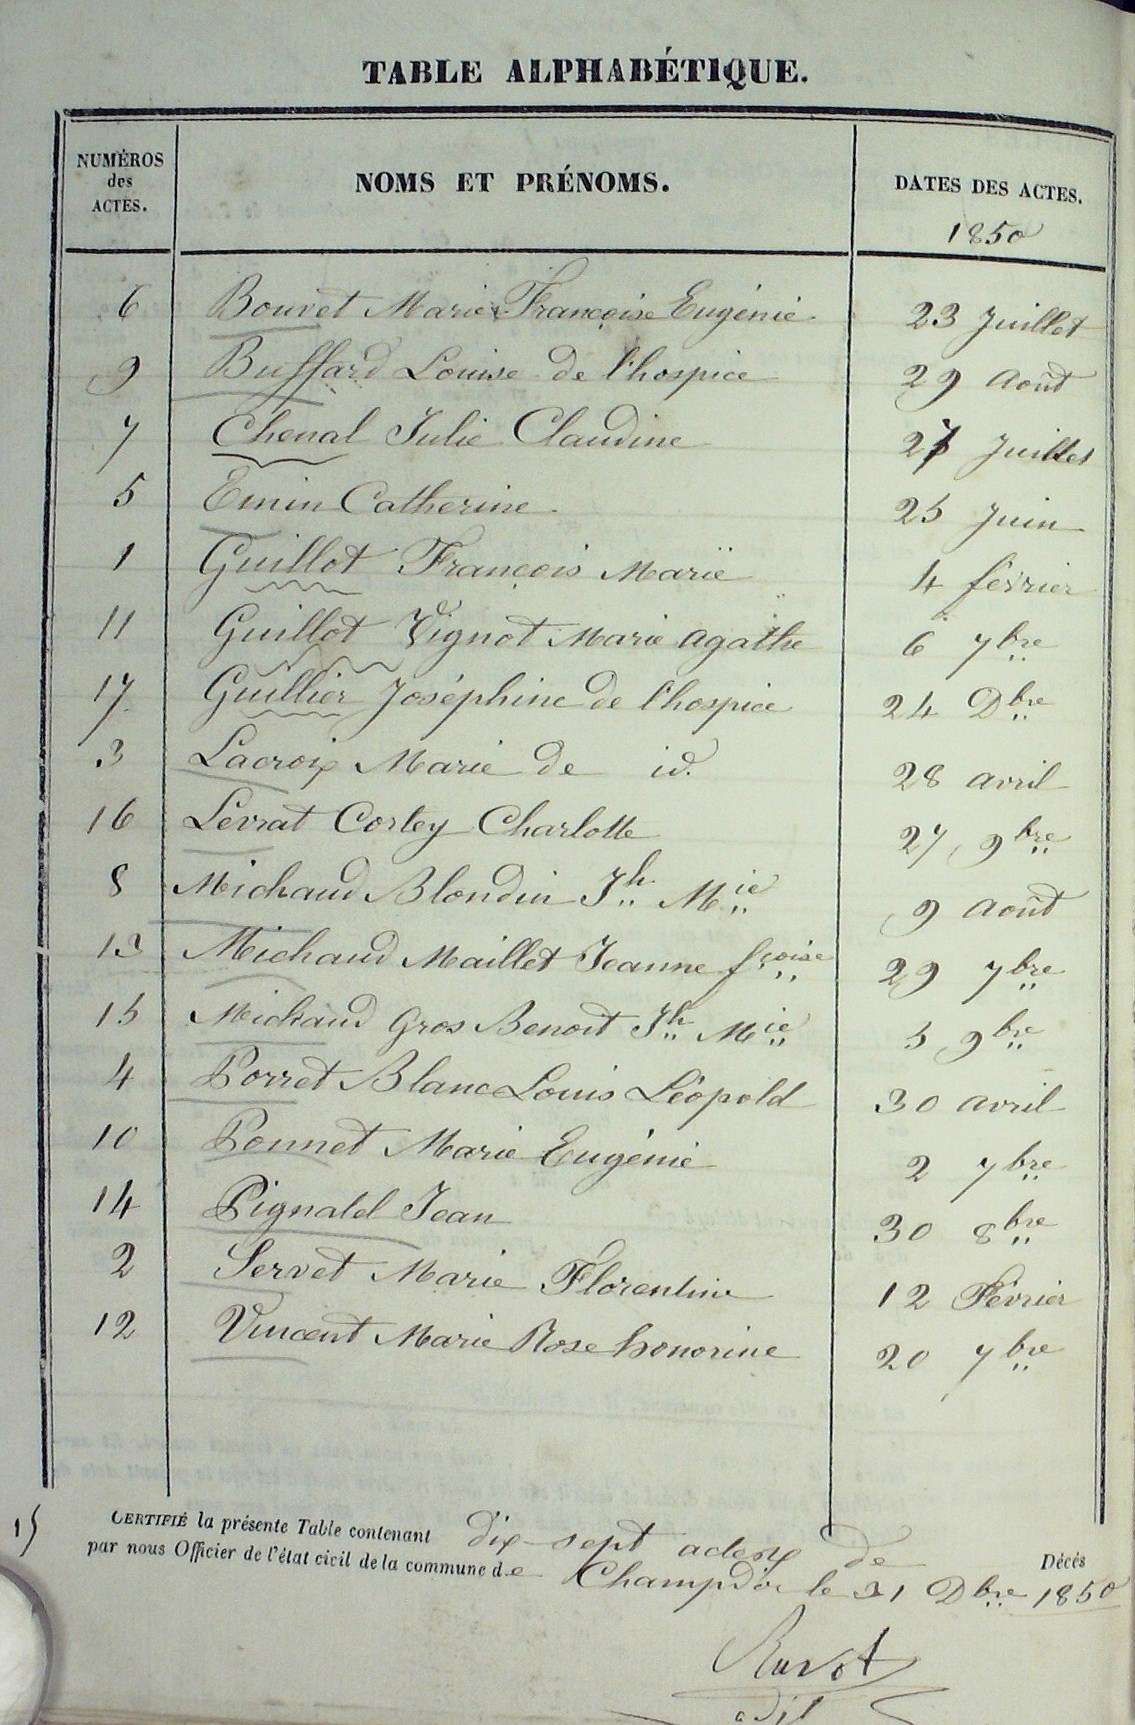 TABLE ALPHABÉTIQUE.
NUMÉROS
des
ACTES.
NOMS ET PRÉNOMS.
DATES DES ACTES.
1850
6 Bouvet Marie Françoise Eugénie 23 Juillet
9 Buffard Louise de l'hospice 29 Août
7 Chenal Julie Claudine 27 Juillet
5 Emin Catherine 25 Juin
1 Guillot François Marie 4 février
11 Guillot Vignot Marie Agathe 6 7bre
17 Guillier Joséphine de l'hospice 24 Dbre
3 Lacroix Marie de id. 28 avril
16 Levrat Cortey Charlotte 27 9bre
8 Michaud Blondin Jh Mie 9 Août
13 Michaud Maillet Jeanne fçoise 29 7bre
15 Michaud Gros Benoit Jh Mie 5 9bre
4 Porret Blanc Louis Léopold 30 avril
10 Ponnet Marie Eugénie 2 7bre
14 Pignatel Jean 30 8bre
2 Servet Marie Florentine 12 Février
12 Vincent Marie Rose honorine 20 7bre
15
CERTIFIÉ la présente Table contenant dix-sept actes de Décés
par nous Officier de l'état civil de la commune de Champdor le 31 Dbre 1850
Ravot